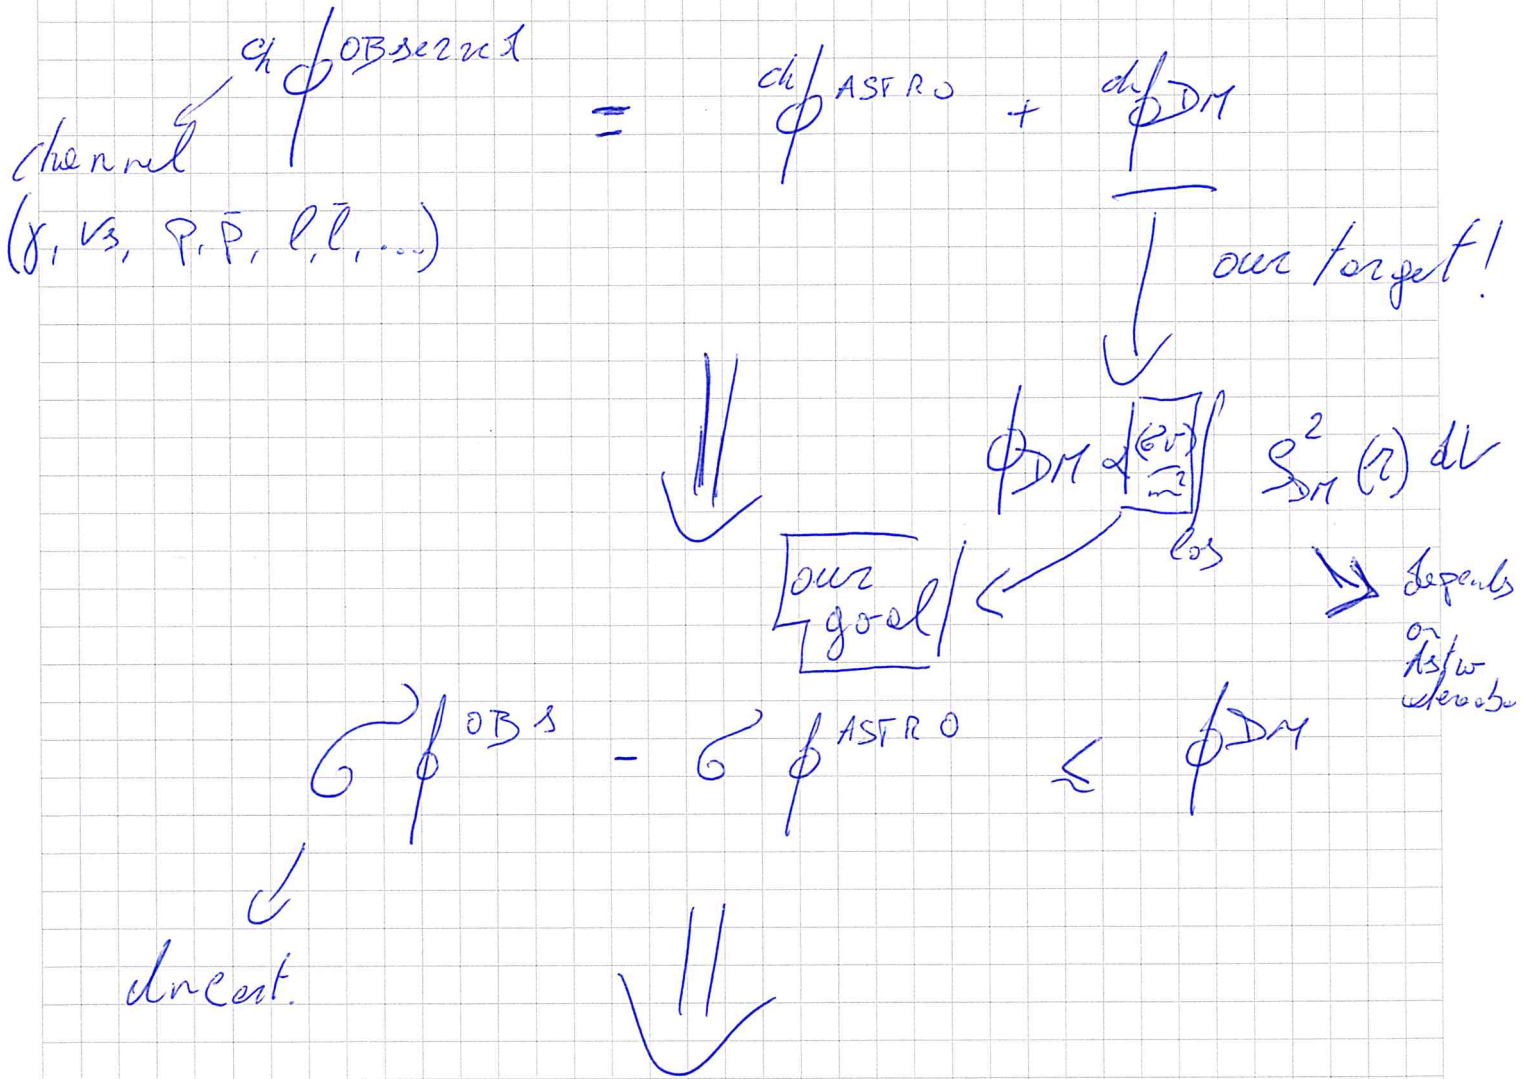 ch ϕ^OBserved = ch ϕ^ASTRO + ch ϕ^DM
channel
(γ, νs, p, p̄, l, l̄, ...)
our target!
ϕ_DM ∝ (σv)/m² ∫_los ρ²_DM (r) dV
our goal
depends
on
Astro
σ ϕ^OBS - σ ϕ^ASTRO ≲ ϕ^DM
Uncert.